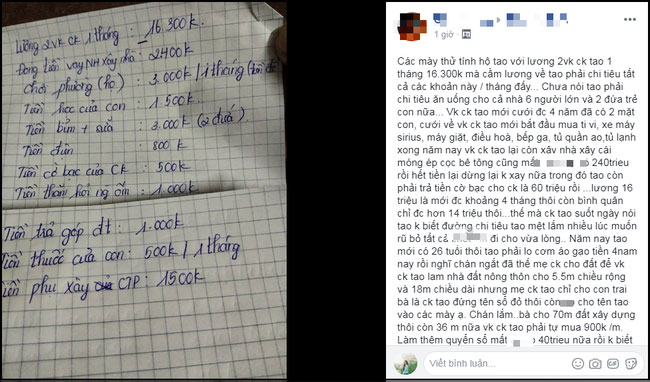 Lương 2vk ck 1 tháng: 16.300k
Đóng tiền vay NH xây nhà: 2400k
Chơi phường (họ): 3.000k / 1 tháng
Tiền học của con: 1.500k
Tiền bỉm + sữa: 3.000k (2 đứa)
Tiền điện: 800k
Tiền cờ bạc của ck: 500k
Tiền thăm hỏi ng ốm: 1.000k
Tiền trả góp đt: 1.000k
Tiền thuốc của con: 500k / 1 tháng
Tiền phụ xây CTP: 1500k
1 giờ
Các mày thử tính hộ tao với lương 2vk ck tao 1
tháng 16.300k mà cầm lương về tao phải chi tiêu tất
cả các khoản này / tháng đấy... Chưa nói tao phải
chi tiêu ăn uống cho cả nhà 6 người lớn và 2 đứa trẻ
con nữa... Vk ck tao mới cưới đc 4 năm đã có 2 mặt
con, cưới về vk ck tao mới bắt đầu mua ti vi, xe máy
sirius, máy giặt, điều hoà, bếp ga, tủ quần ao,tủ lạnh
xong năm nay vk ck tao lại còn xây nhà xây cái
móng ép cọc bê tông cũng mất 240trieu
rồi hết tiền lại dừng lại k xay nữa trong đó tao còn
phải trả tiền cờ bạc cho ck là 60 triệu rồi ...lương 16
triệu là mới đc khoảng 4 tháng thôi còn bình quân
chỉ đc hơn 14 triệu thôi...thế mà ck tao suốt ngày nói
tao k biết đường chi tiêu tao mệt lắm nhiều lúc muốn
rũ bỏ tất cả đi cho vừa lòng.. Năm nay tao
mới có 26 tuổi thôi tao phải lo cơm áo gạo tiền 4nam
nay rồi nghĩ chán ngắt đã thế mẹ ck cho đất để vk
ck tao lam nhà đất nông thôn cho 5.5m chiều rộng
và 18m chiều dài nhưng mẹ ck tao chỉ cho con trai
bà là ck tao đứng tên sổ đỏ thôi còn cho tên tao
vào các mày ạ. Chán lắm..bà cho 70m đất xây dựng
thôi còn 36 m nữa vk ck tao phải tự mua 900k /m.
Làm thêm quyển sổ mất 40trieu nữa rồi k biết
Viết bình luận...